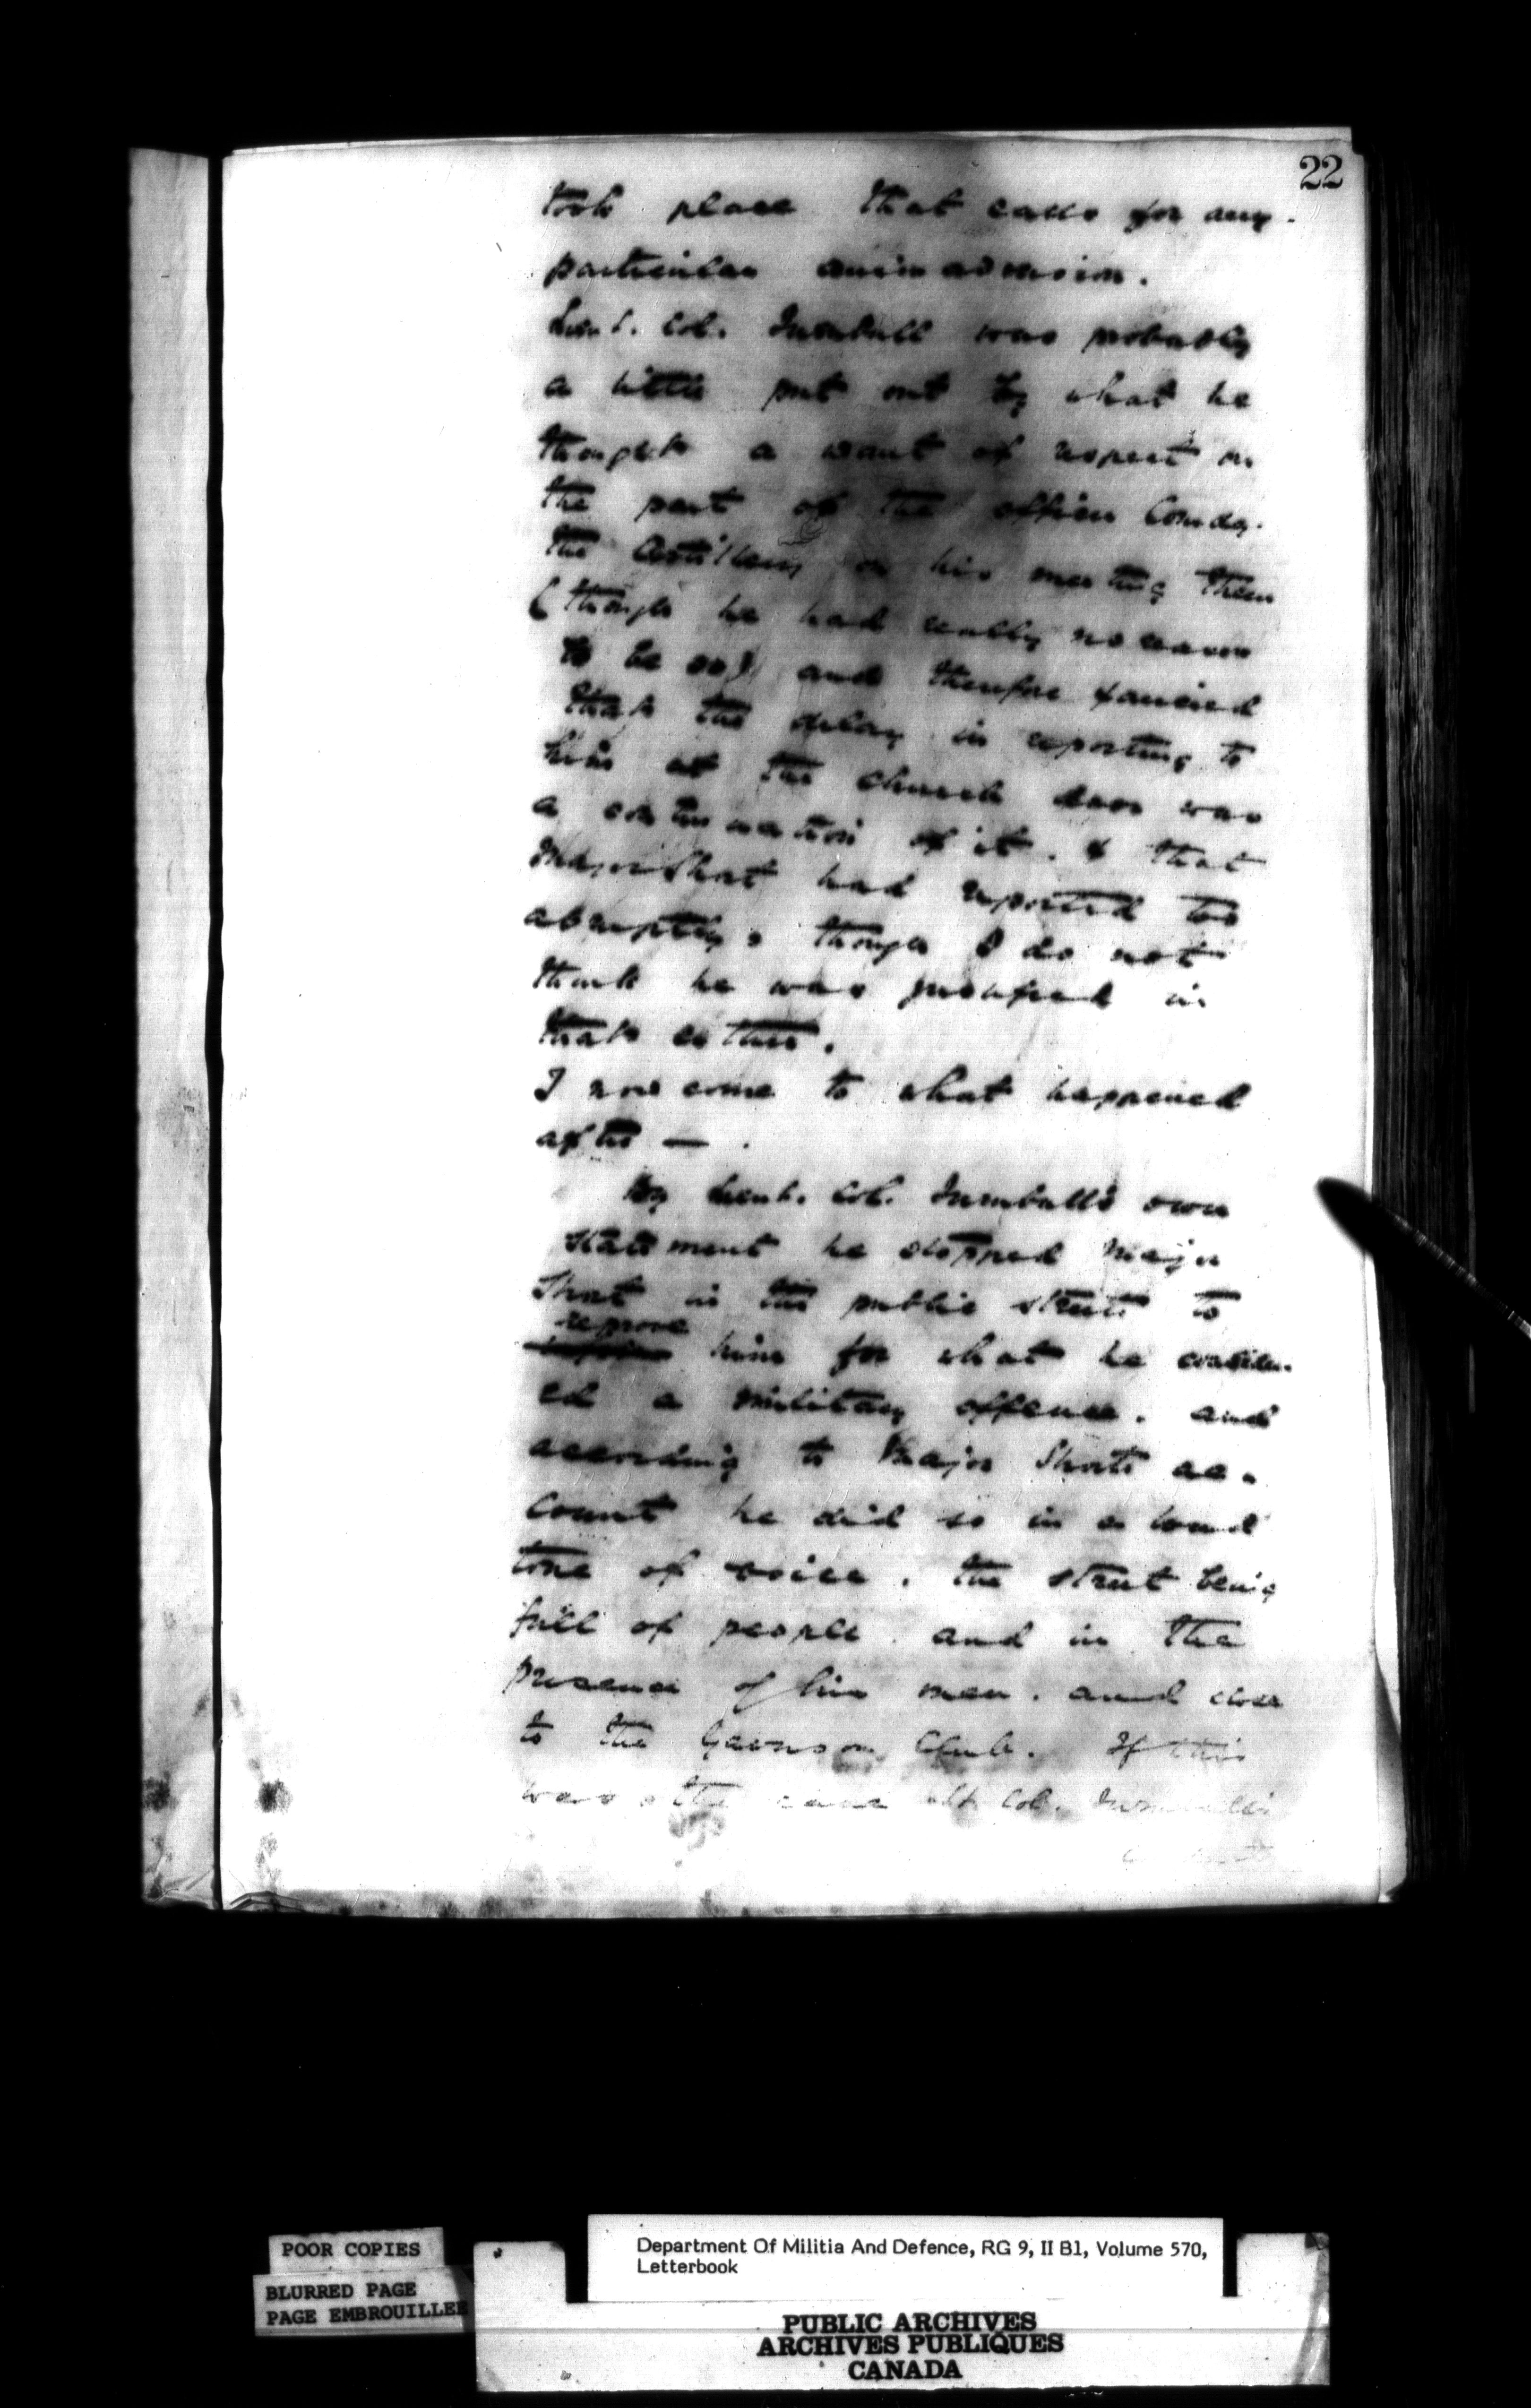 22
took place that calls for any
particular animadversion.
Lieut. Col. Turnbull was probably
a little put out by what he
thought a want of respect on
the part of the officer Comdg.
the Artillery on his meeting them
(though he had really no reason
to be so) and therefore fancied
that the delay in reporting to
him at the church door was
a continuation of it. & that
Major Short had reported too
abruptly, though I do not
think he was justified in
that either.
I now come to what happened
after —
By Lieut. Col. Turnbull's own
statement he stopped Major
Short in the public street to
reprove
him for what he consider-
ed a military offence. and
according to Major Short's ac-
count he did so in a loud
tone of voice. the street being
full of people and in the
presence of his men. and close
to the Garrison Club. If this
was the case Lt Col. Turnbull's
POOR COPIES
BLURRED PAGE
PAGE EMBROUILLEE
Department Of Militia And Defence, RG 9, II B1, Volume 570,
Letterbook
PUBLIC ARCHIVES
ARCHIVES PUBLIQUES
CANADA